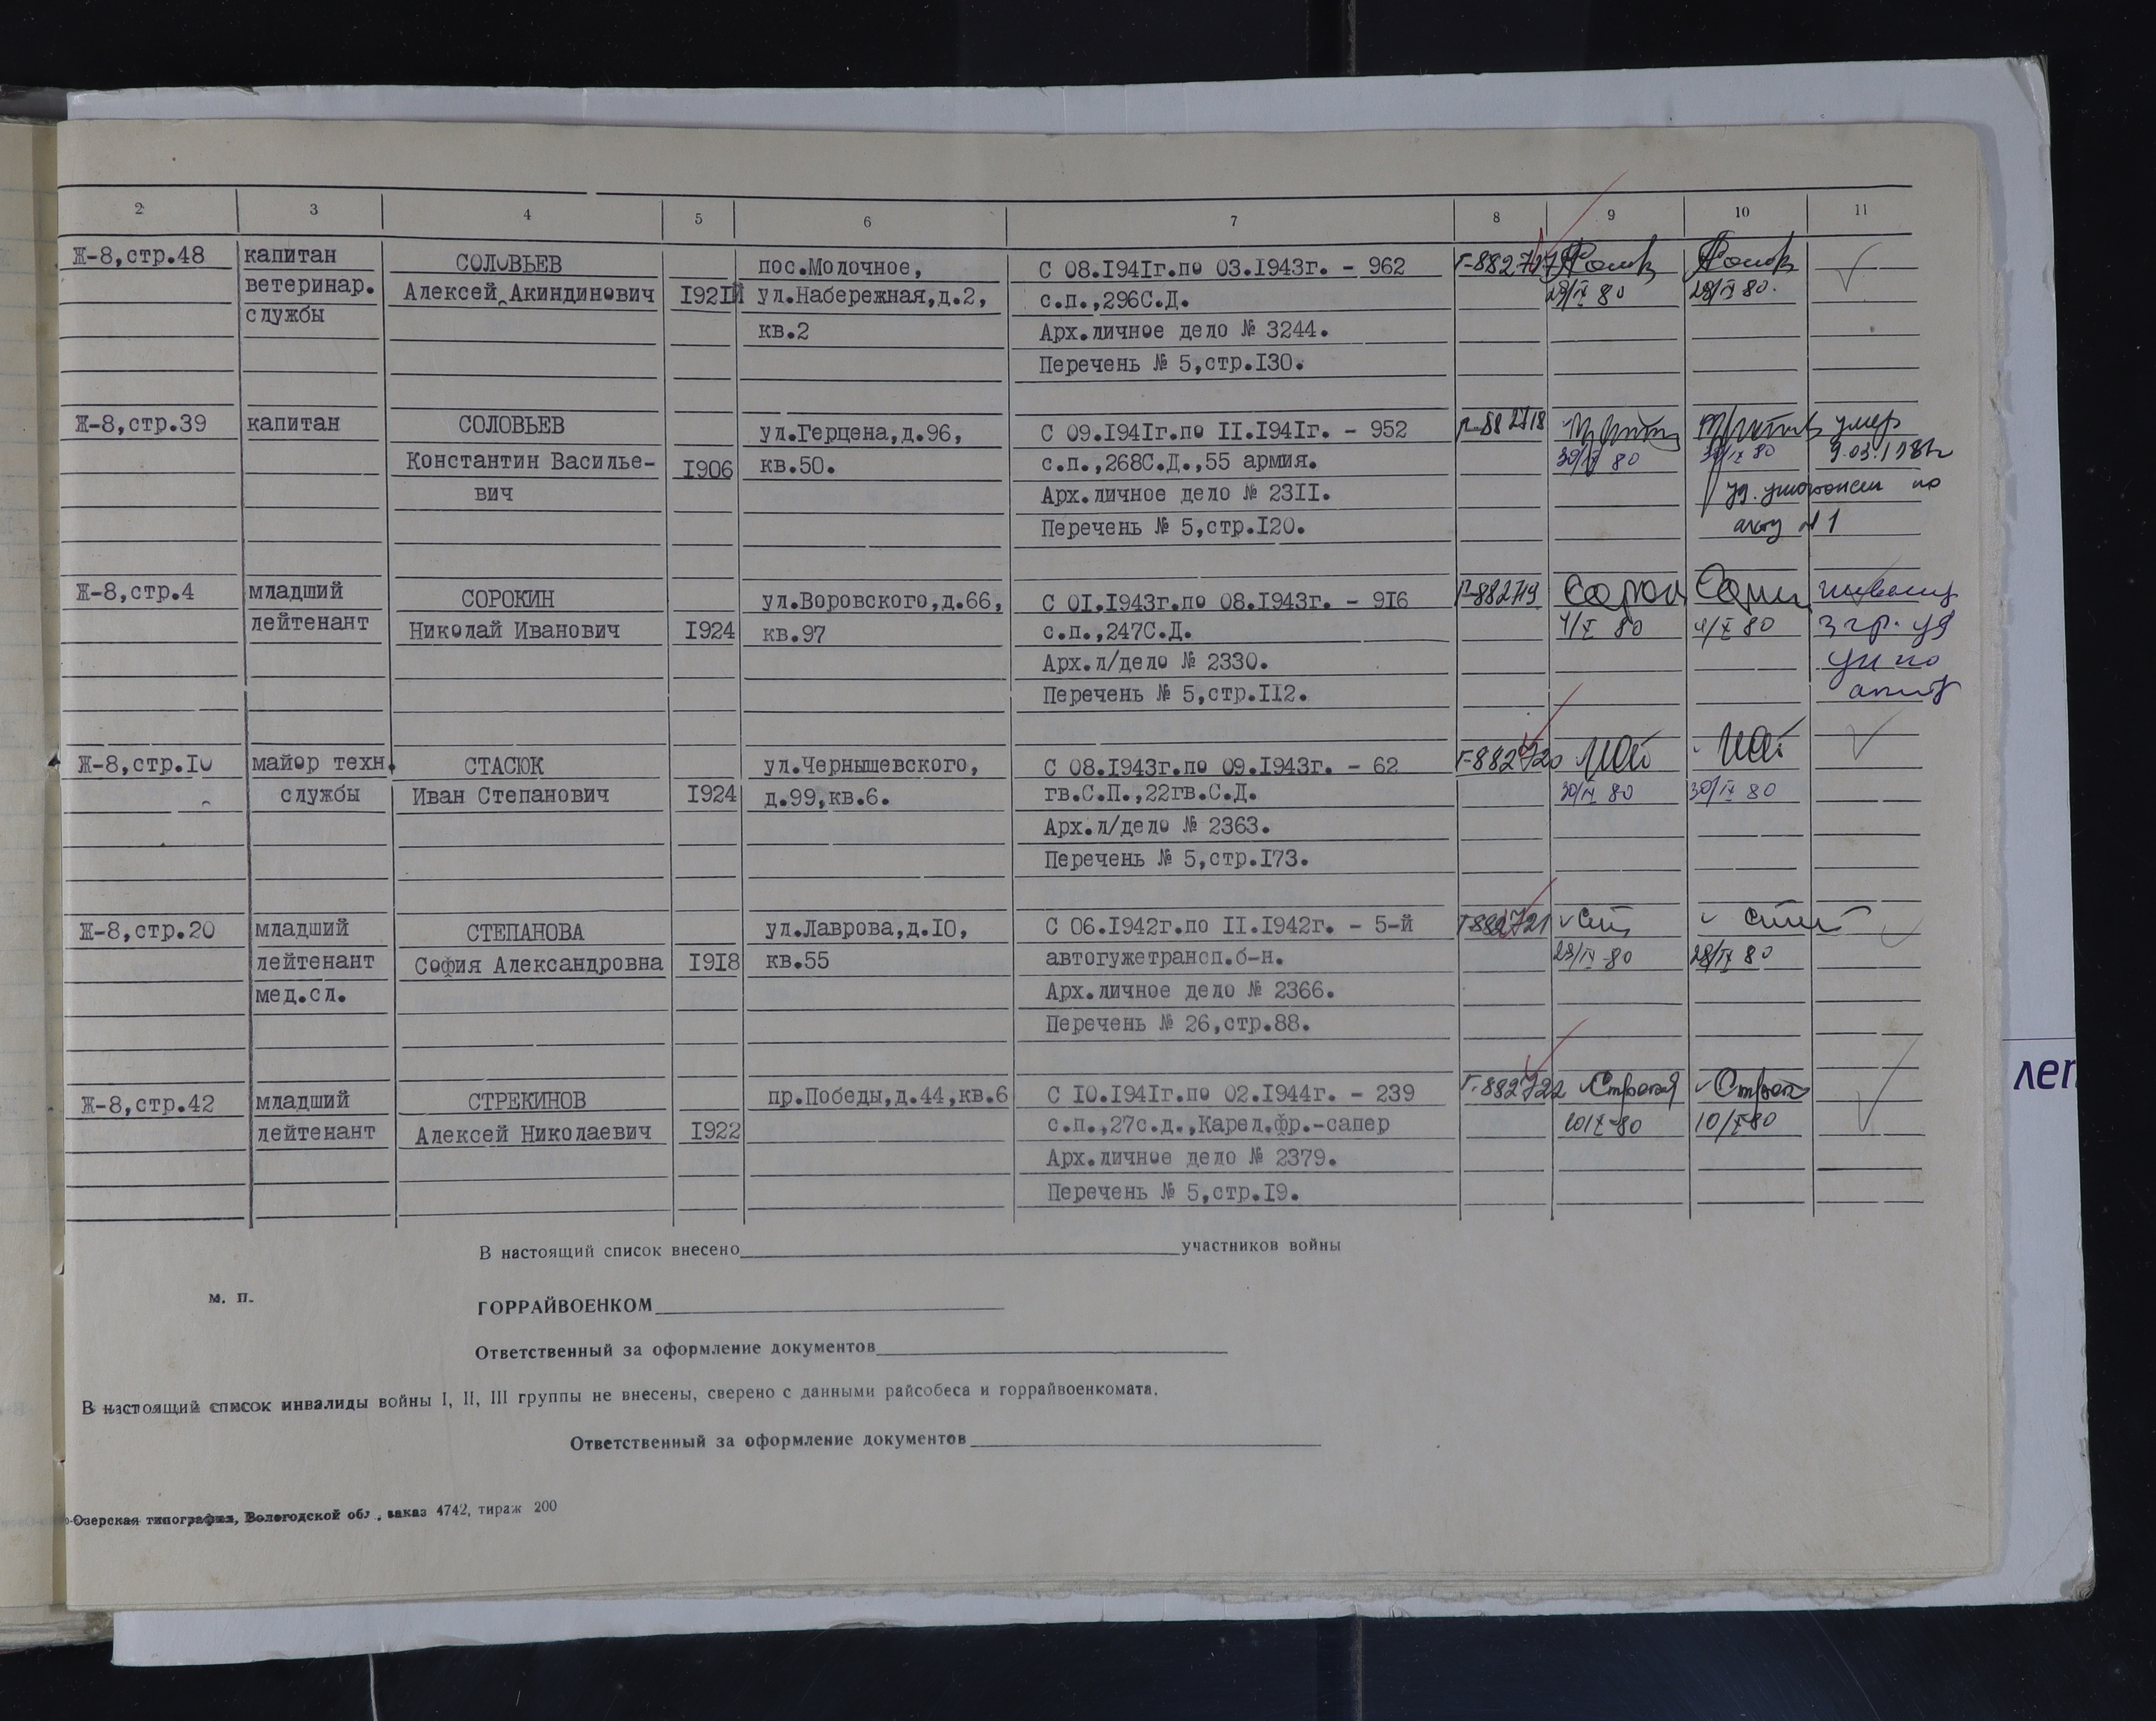 2 3 4 5 6 7 8 9 10 11
Ж-8,стр.48 капитан СОЛОВЬЕВ пос.Молочное, С 08.194Iг.по 03.1943г. - 962 Г-882717
ветеринар. Алексей Акиндинович I92I ул.Набережная,д.2, с.п.,296С.Д. 29/IX 80 29/IX 80.
службы кв.2 Арх.личное дело № 3244.
Перечень № 5,стр.I30.
Ж-8,стр.39 капитан СОЛОВЬЕВ ул.Герцена,д.96, С 09.194Iг.по II.194Iг. - 952 Г-882718 умер
Константин Василье- I906 кв.50. с.п.,268С.Д.,55 армия. 30/IX 80 30/IX 80 9.03.1981г
вич Арх.личное дело № 23II. уд. уничтожен по
Перечень № 5,стр.I20. акту № 1
Ж-8,стр.4 младший СОРОКИН ул.Воровского,д.66, С 0I.I943г.по 08.I943г. - 9I6 Г-882719
лейтенант Николай Иванович I924 кв.97 с.п.,247С.Д. 4/X 80 4/X 80 3 гр. уд
Арх.л/дело № 2330. ун по
Перечень № 5,стр.II2. акту
Ж-8,стр.I0 майор техн. СТАСЮК ул.Чернышевского, С 08.I943г.по 09.I943г. - 62 Г-882720
службы Иван Степанович I924 д.99,кв.6. гв.С.П.,22гв.С.Д. 30/IX 80 30/IX 80
Арх.л/дело № 2363.
Перечень № 5,стр.I73.
Ж-8,стр.20 младший СТЕПАНОВА ул.Лаврова,д.I0, С 06.I942г.по II.I942г. - 5-й Г-882721
лейтенант София Александровна I9I8 кв.55 автогужетрансп.б-н. 29/IX-80 28/IX 80
мед.сл. Арх.личное дело № 2366.
Перечень № 26,стр.88.
Ж-8,стр.42 младший СТРЕКИНОВ пр.Победы,д.44,кв.6 С I0.I94Iг.по 02.I944г. - 239 Г-882722
лейтенант Алексей Николаевич I922 с.п.,27с.д.,Карел.фр.-сапер 10/X-80 10/X-80
Арх.личное дело № 2379.
Перечень № 5,стр.I9.
В настоящий список внесено участников войны
м. п.
ГОРРАЙВОЕНКОМ
Ответственный за оформление документов
В настоящий список инвалиды войны I, II, III группы не внесены, сверено с данными райсобеса и горрайвоенкомата.
Ответственный за оформление документов
Озерская типография, Вологодской обл., заказ 4742, тираж 200